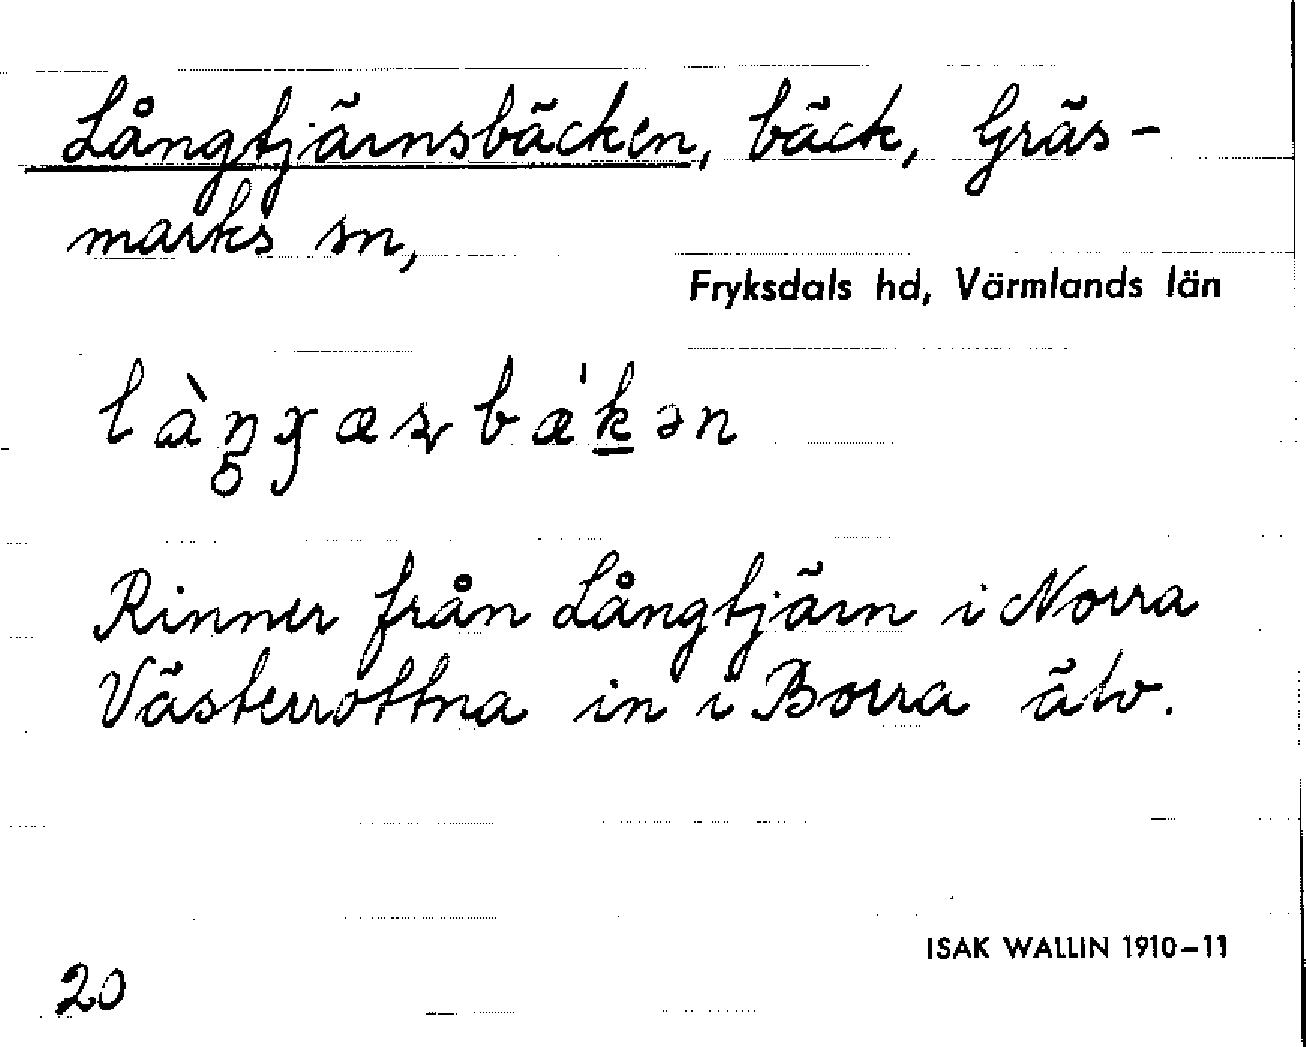 Långtjärnsbäcken, bäck, Gräs-
marks sn,
Fryksdals hd, Värmlands län
Rinner från Långtjärn i Norra
Västerrottna in i Borra älv.
ISAK WALLIN 1910–11
20